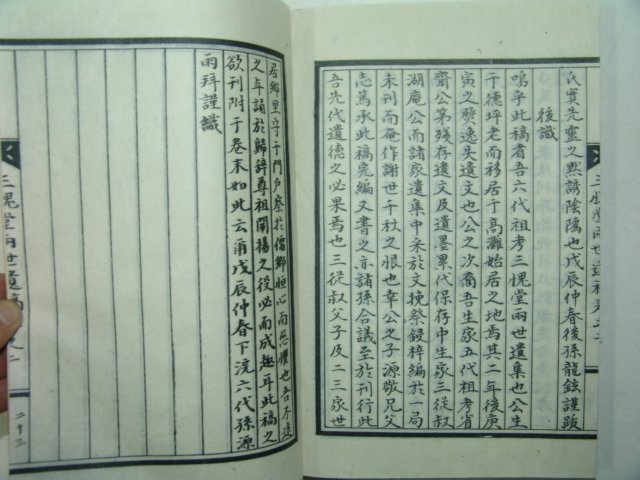 氏實先靈之黙誘陰隲也戊辰仲春後孫龍鉉謹跋
後識
嗚乎此稿者吾六代祖考三愧堂兩世遺集也公生
于德坪老而移居于高灘始居之地焉其二年後庚
寅之燹逸失遺文也公之次裔吾生家五代祖考省
齋公苐殘存遺文及遺墨累代保存中生家三從叔
湖庵公而諸家遺集中采於文挽祭鋟梓編於一局
未刊而奄作謝世千秋之恨也幸公之子源敬兄父
志篤承此稿完編又書之亦諸孫合議至於刊行此
吾先代遺德之必果焉也三從叔父子及二三家世
居鄕里守于門戶察於儒鄕恒心而恐懼也吾不遠
之年誦於歸鋅尊祖闡揚之役必而成趣年此稿之
欲刊附于卷末如此云爾戊辰仲春下浣六代孫源
雨拜謹識
三愧堂兩世遺稿卷之二
二十三